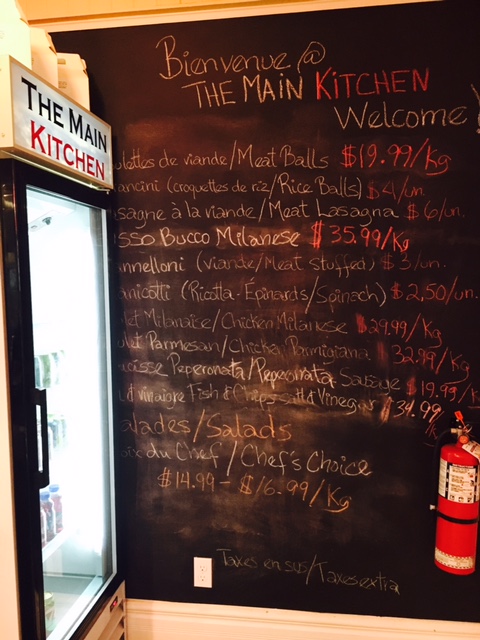 THE MAIN
KITCHEN
Bienvenue @
THE MAIN KITCHEN
Welcome!
ulettes de viande/Meat Balls $19.99/Kg
ancini (croquettes de riz/Rice Balls) $4/un.
sagne à la viande/Meat Lasagna $6/un.
sso Bucco Milanese $35.99/Kg
nnelloni (viande/Meat stuffed) $3/un.
nicotti (Ricotta-Épinards/Spinach) $2,50/un.
let Milanaise/Chicken Milanese $29.99/Kg
ulet Parmesan/Chicken Parmigiana 32.99/Kg
cisse Peperonata/Peperonata Sausage $19.99/K
vinaigre Fish & Chips salt & Vinegar $34.99/Kg
alades/Salads
oix du Chef/Chef's Choice
$14.99 - $16.99/Kg
Taxes en sus/Taxes extra